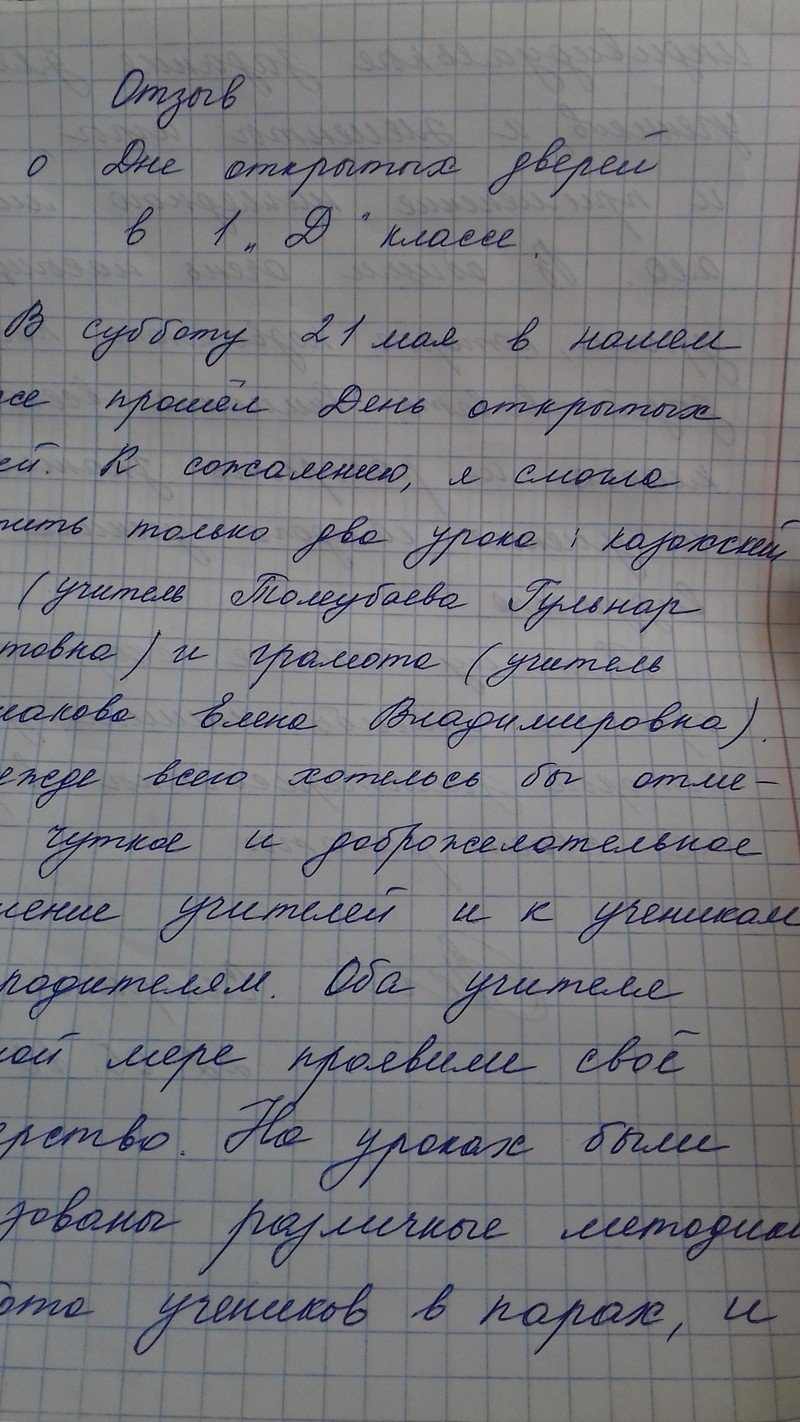 Отзыв
о Дне открытых дверей
в 1 „Д" классе.
В субботу 21 мая в нашем
прошёл День открытых
ей. К сожалению, я смогла
тить только два урока: казахский
(учитель Толеубаева Гульнар
товна) и грамота (учитель
макова Елена Владимировна).
ежде всего хотелось бы отме-
чуткое и доброжелательное
шение учителей и к ученикам
родителям. Оба учителя
ной мере проявили своё
ерство. На уроках были
зованы различные методики
бота учеников в парах, и